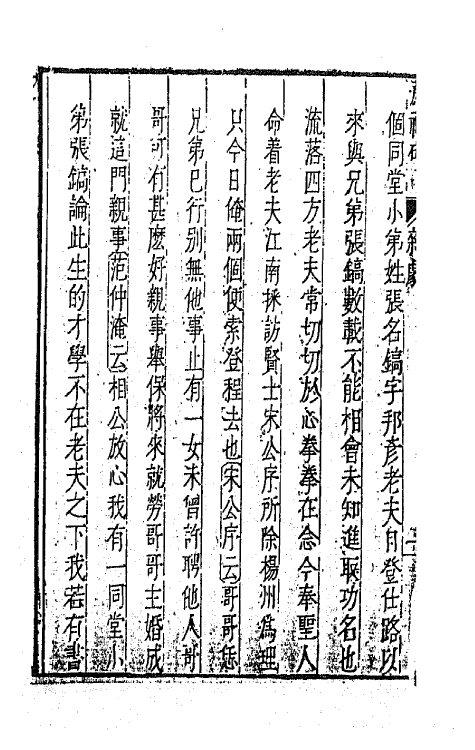 個同堂小弟姓張名鎬字邦彥老夫自登仕路以
來與兄弟張鎬數載不能相會未知進取功名也
流落四方老夫常切切於心拳拳在念今奉聖人
命着老夫江南採訪賢士宋公序所除楊州為理
只今日俺兩個便索登程去也宋公序云哥哥恁
兄弟已行別無他事止有一女未曾許聘他人哥
哥可有甚麽好親事舉保將來就勞哥哥主婚成
就這門親事范仲淹云相公放心我有一同堂小
弟張鎬論此生的才學不在老夫之下我若有書